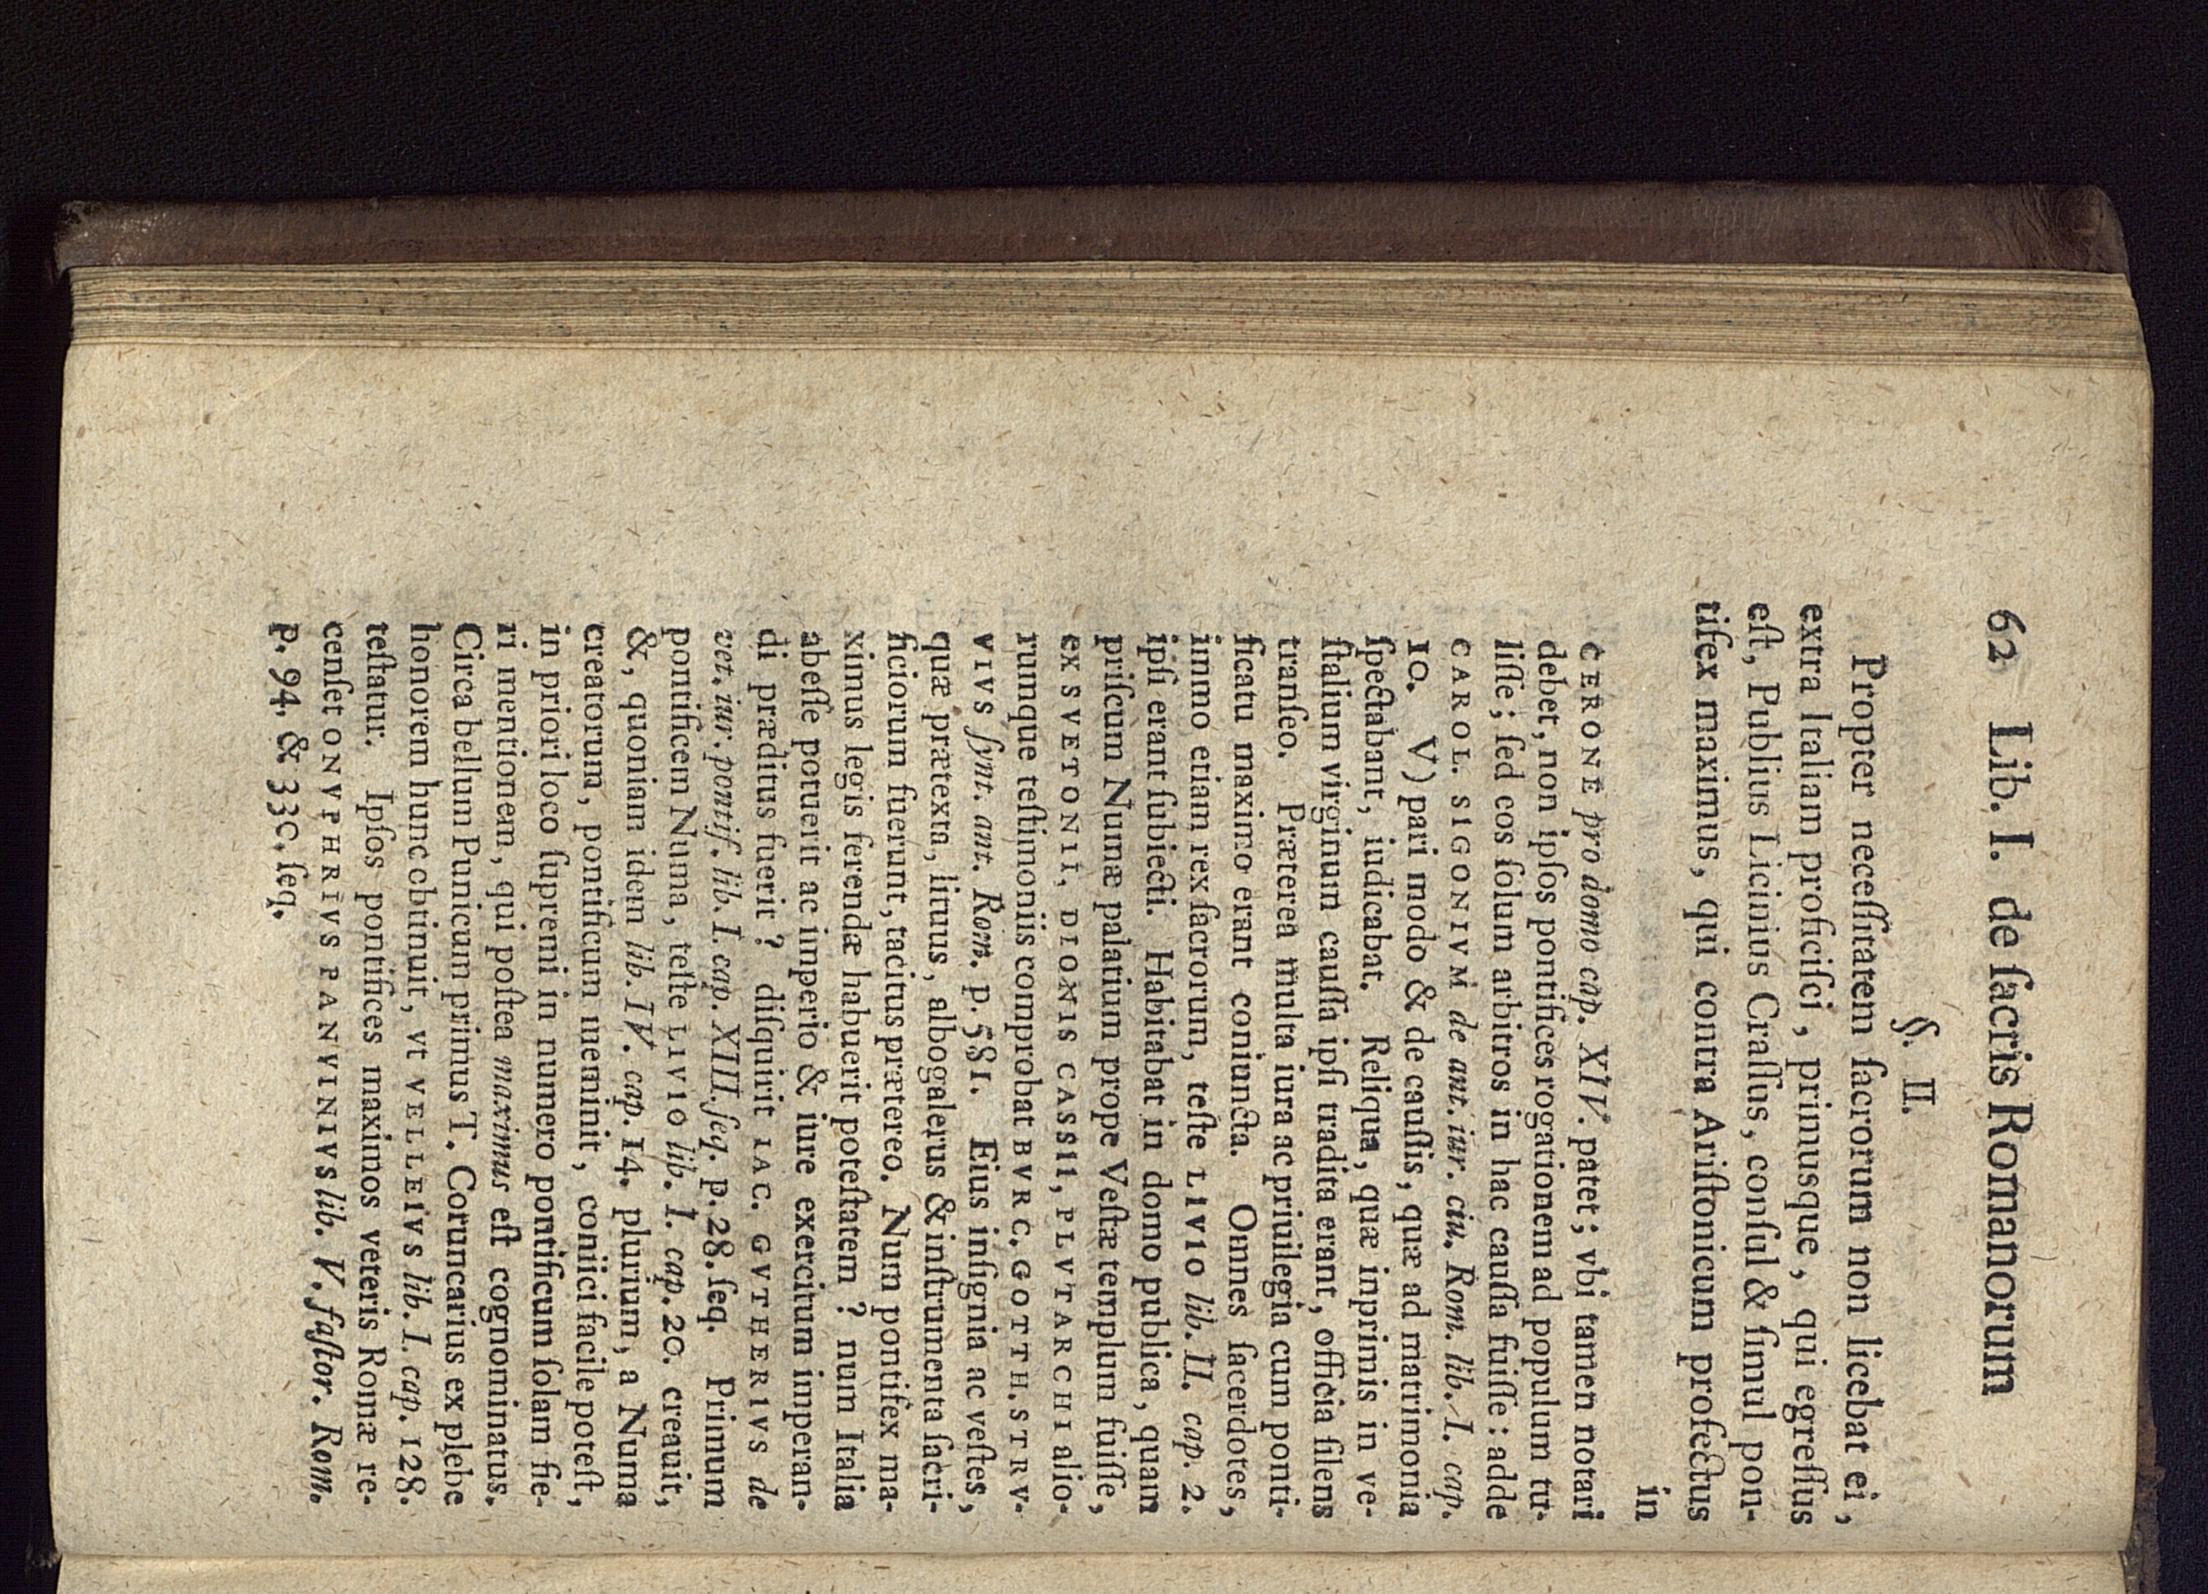 62 Lib. I. de ſacris Romanorum
§. II.
Propter neceſſitatem ſacrorum non licebat ei,
extra Italiam proficiſci, primusque, qui egreſſus
eſt, Publius Licinius Craſſus, conſul & ſimul pon-
tifex maximus, qui contra Ariſtonicum profectus
in
CERONE pro domo cap. XIV. patet; vbi tamen notari
debet, non ipſos pontifices rogationem ad populum tu-
liſſe; ſed eos ſolum arbitros in hac cauſſa fuiſſe: adde
CAROL. SIGONIVM de ant. iur. ciu. Rom. lib. I. cap.
10. V) pari modo & de cauſſis, quæ ad matrimonia
ſpectabant, iudicabat. Reliqua, quæ inprimis in ve-
ſtalium virginum cauſſa ipſi tradita erant, officia ſilens
tranſeo. Præterea multa iura ac priuilegia cum ponti-
ficatu maximo erant coniuncta. Omnes ſacerdotes,
immo etiam rex ſacrorum, teſte LIVIO lib. II. cap. 2.
ipſi erant ſubiecti. Habitabat in domo publica, quam
priſcum Numæ palatium prope Veſtæ templum fuiſſe,
ex SVETONII, DIONIS CASSII, PLVTARCHI alio-
rumque teſtimoniis comprobat BVRC. GOTTH. STRV-
VIVS ſynt. ant. Rom. p. 581. Eius inſignia ac veſtes,
quæ prætexta, lituus, albogalerus & inſtrumenta ſacri-
ficiorum fuerunt, tacitus prætereo. Num pontifex ma-
ximus legis ferendæ habuerit poteſtatem? num Italia
abeſſe potuerit ac imperio & iure exercitum imperan-
di præditus fuerit? diſquirit IAC. GVTHERIVS de
vet. iur. pontif. lib. I. cap. XIII. ſeq. p. 28. ſeq. Primum
pontificem Numa, teſte LIVIO lib. I. cap. 20. creauit,
&, quoniam idem lib. IV. cap. 14. plurium, a Numa
creatorum, pontificum meminit, coniici facile poteſt,
in priori loco ſupremi in numero pontificum ſolam fie-
ri mentionem, qui poſtea maximus eſt cognominatus.
Circa bellum Punicum primus T. Coruncarius ex plebe
honorem hunc obtinuit, vt VELLEIVS lib. I. cap. 128.
teſtatur. Ipſos pontifices maximos veteris Romæ re-
cenſet ONVPHRIVS PANVINIVS lib. V. faſtor. Rom.
p. 94. & 330. ſeq.